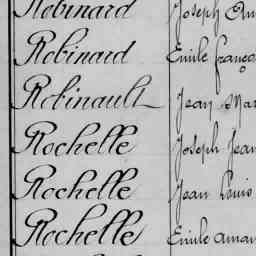 Robinard Joseph
Robinard Emile franço
Robinault Jean Mar
Rochelle Joseph Jean
Rochelle Jean Louis
Rochelle Emile aman